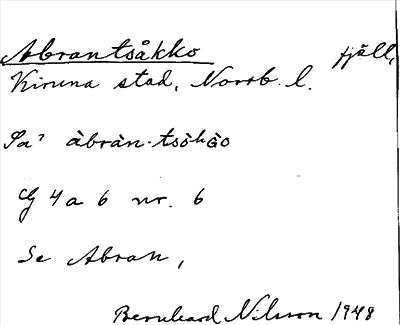 Abrantsåkko fjäll,
Kiruna stad, Norrb. l.
Sa' àbràn-tsòkGo
G 4 a 6 nr. 6
Se Abran,
Bernhard Nilsson 1948